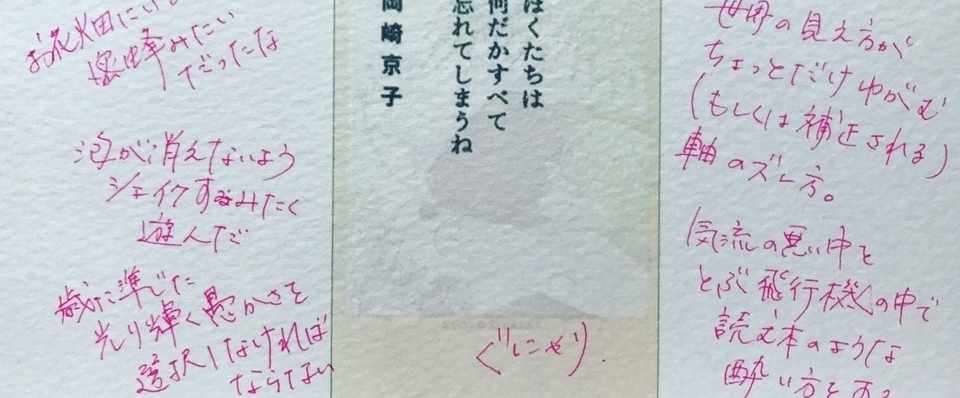 お花畑にい
蜂みたい
だったな
泡が消えないよう
シェイクするみたく
遊んだ
歳に準じた
光り輝く愚かさを
選択しなければ
ならない
ぼくたちは
何だかすべて
忘れてしまうね
岡崎京子
ぐにゃり.
世界の見え方が
ちょっとだけゆがむ
(もしくは補正される)
軸のズレ方。
気流の悪い中を
とぶ飛行機の中で
読む本のような
酔い方をする